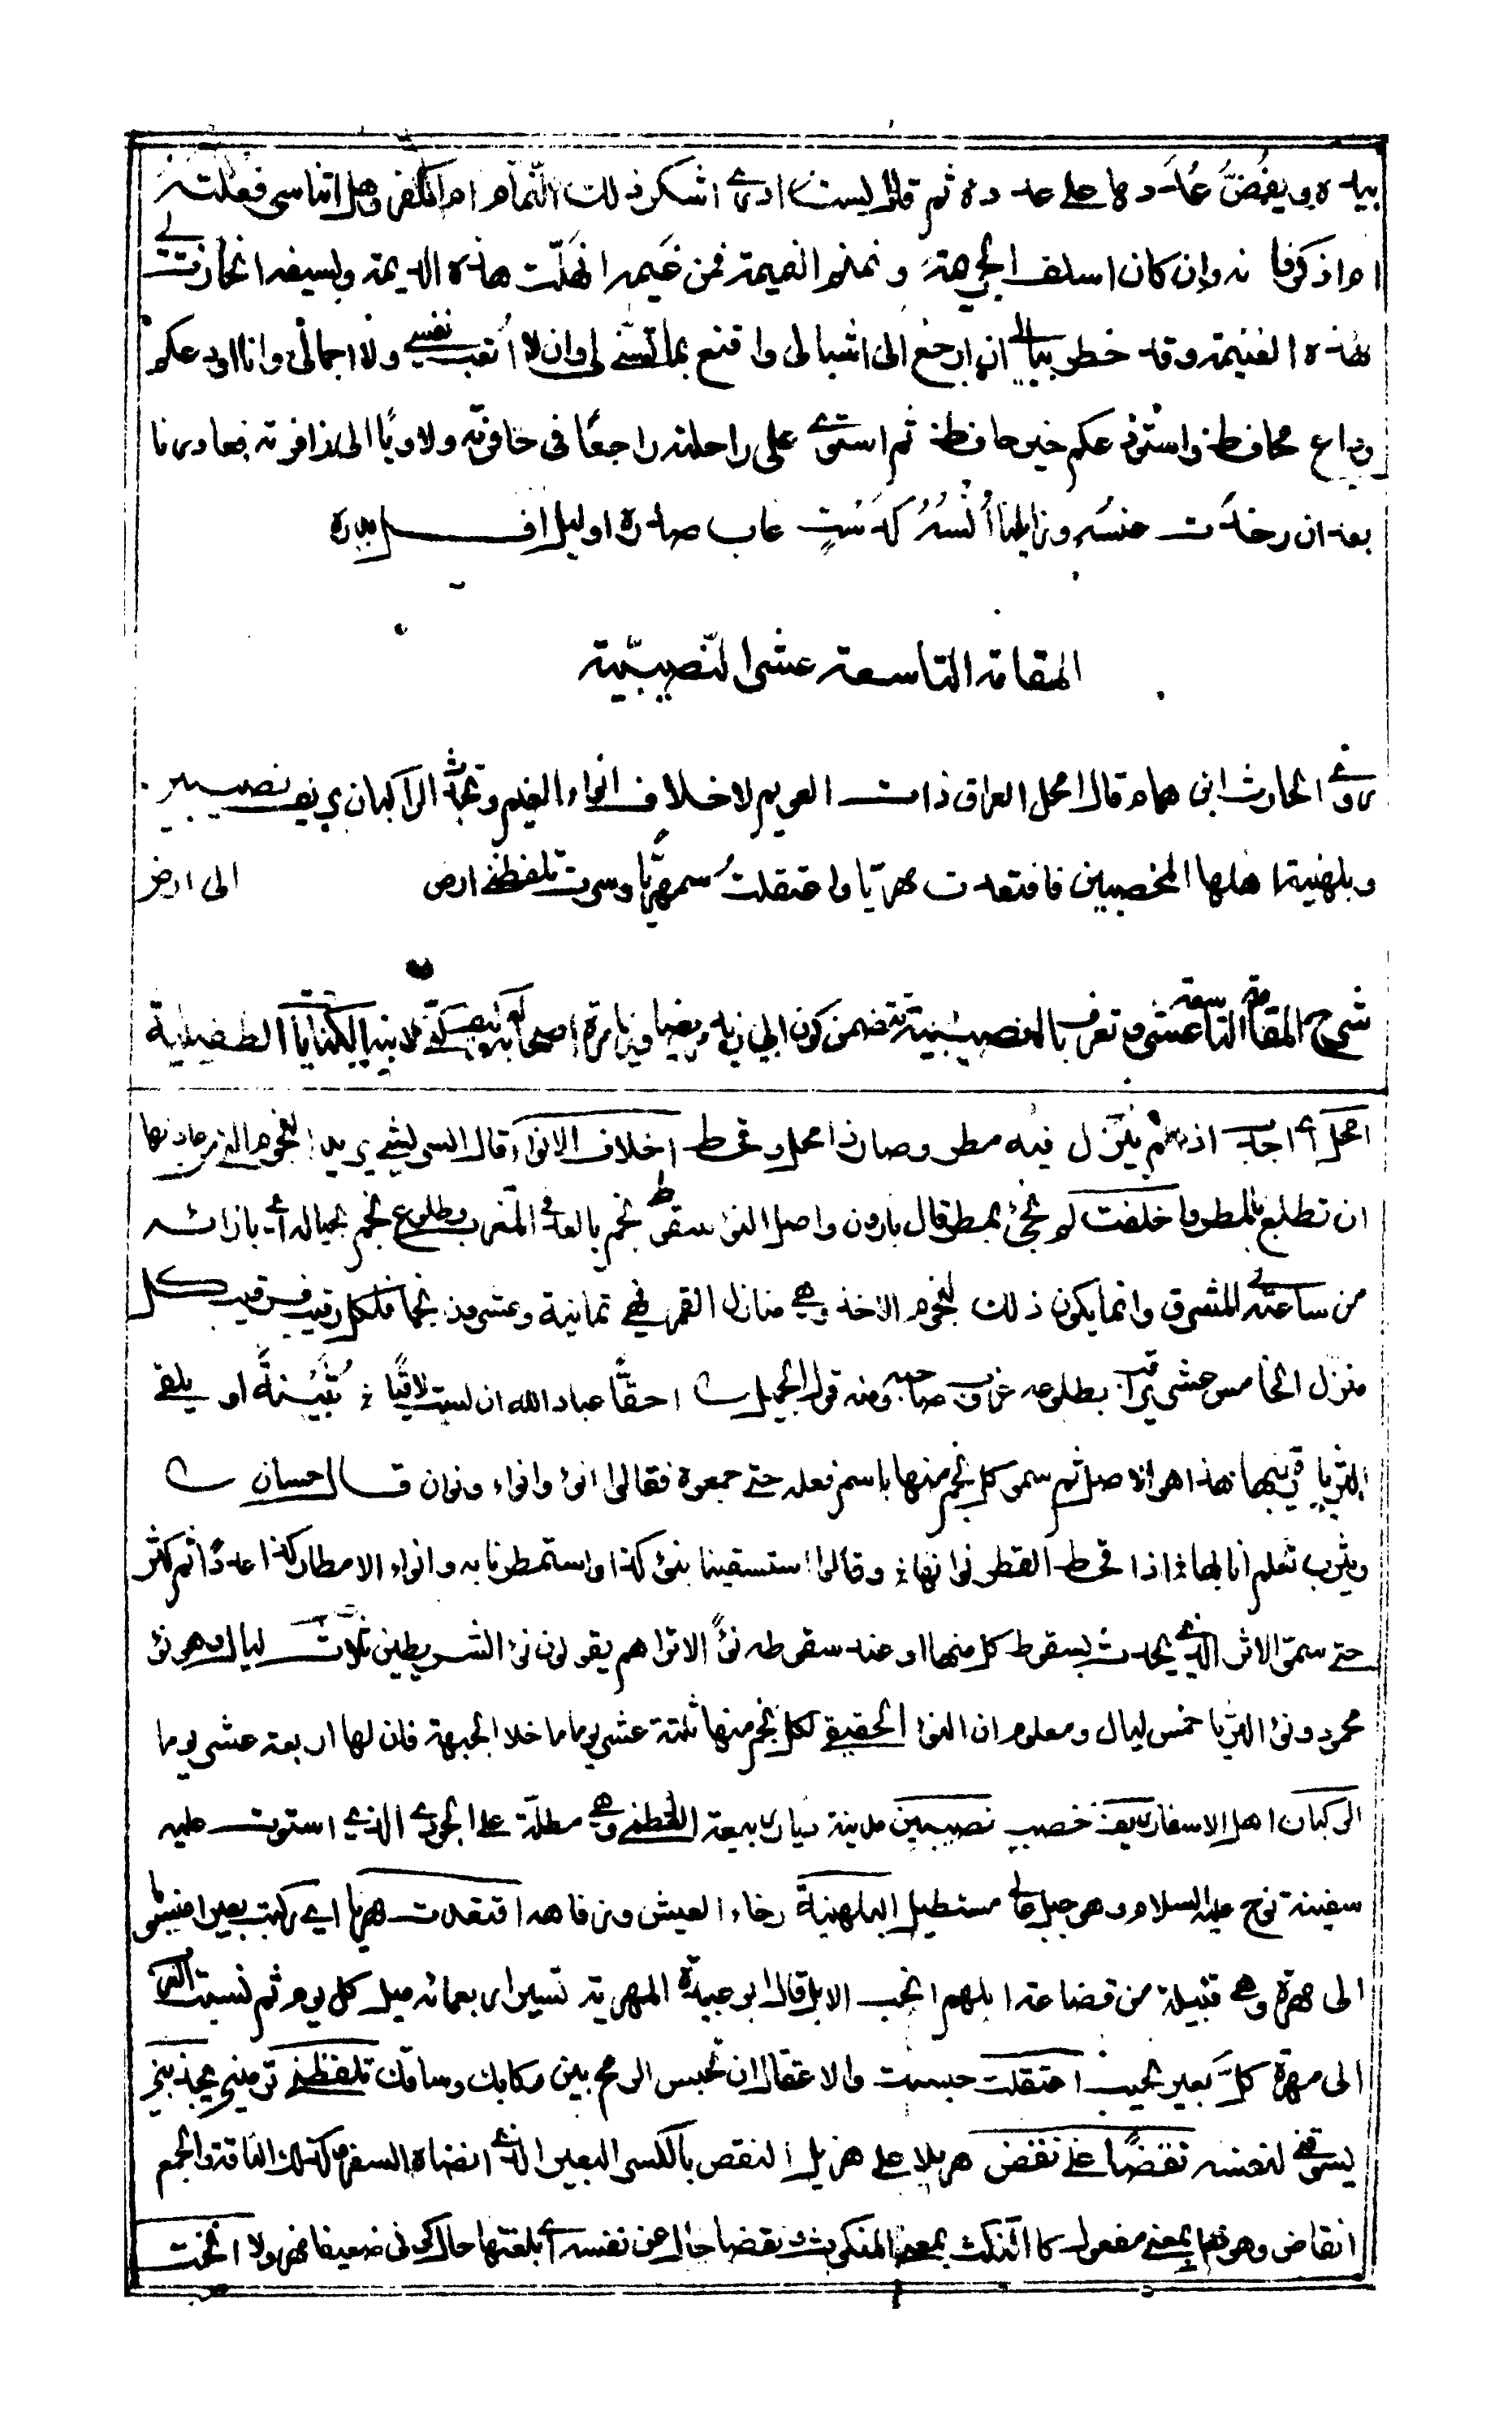 بيده ويفض عددها على عدده ثم قال لست ادرى اشكو ذلك النمام ام اشكر وهل اتناسى فعلته
ام اذكرها فانه وان كان اسلف الجريمة ونمنم النميمة فمن غيمه انهلت هذه الديمة وبسيفه انحازت لى
هذه الغنيمة وقد خطر ببالى ان ارجع الى اشبالى واقنع بما تسنى لى وان لا اتعب نفسى ولا اجمالى وانا اودعكم
وداع محافظ واستودعكم خير حافظ ثم استوى على راحلته راجعا فى حافرته ولاويا الى زافرته فغادرنا
بعد ان وخدت عنسه وزايلنا انسه كدست غاب صدره او ليل افل بدره
المقامة التاسعة عشر النصيبية
روى الحارث ابن همام قال امحل العراق ذات العويم لاخلاف انواء الغيم وتحدث الركبان بريف نصيبين
وبلهنية اهلها المخصبين فاقتعدت مهريا واعتقلت سمهريا وسرت تلفظنى ارض الى ارض
شرح المقامة التاسعة عشر وتعرف بالنصيبية تتضمن كون ابى زيد مريضا وزيارة اصحابه له لابنه بالكنايات الطفيلية
امحل اى اجدب اذ لم ينزل فيه مطر وصار ذا محل وقحط اخلاف الانواء قال الشريشى يريد النجوم التى عادتها
ان تطلع بالمطر واخلفت لم تجئ بمطر قال بارون واصل النوء سقوط نجم بالغداة فى المغرب وطلوع نجم بحياله اى بازائه
من ساعته فى المشرق وانما يكون ذلك لنجوم الاخذ وهى منازل القمر فهى ثمانية وعشرون نجما فلكل رقيب فرقيب كل
منزل الخامس عشر بطلوعه غروب صاحبه ومنه قول الجميل احقا عباد الله ان لست لاقيا بثينة او يلقى
الثريا رقيبها هذا هو الاصل ثم سمى كل نجم منها باسم فعله حتى جمعوه فقالوا انوء وانواء ونوان قال حسان
ويثرب تعلم انا بها اذا قحط القطر نوانها وقالوا استسقينا بنوء كذا واستمطرنا به وانواء الامطار كذا عددا ثم كثر
حتى سمى الاثر الذى يحدث بسقوط كل منها او عند سقوطه نوء الا تراهم يقولون نوء الشرطين ثلاث ليال وهو نوء
محمود ونوء الثريا خمس ليال ومعلوم ان النوء الحقيقى لكل نجم منها ثلثة عشر يوما ما خلا الجبهة فان لها اربعة عشر يوما
الركبان اهل الاسفار بريف خصب نصيبين مدينة ديار ربيعة العظمى وهى مطلة على الجودى الذى استوت عليه
سفينة نوح عليه السلام وهو جبل عال مستطيل البلهنية رخاء العيش ورفاهه اقتعدت مهريا اى ركبت بعيرا منسوبا
الى مهرة وهى قبيلة من قضاعة ابلهم انجب الابل قال ابو عبيدة المهرية تسير اربعمائة ميل كل يوم ثم نسبت العرب
الى مهرة كل بعير نجيب اعتقلت حبست والاعتقال ان تحبس الرمح بين ركابك وساقك تلفظنى ترمينى يجذبنى
نقضا على نقض هزيلا على هزيل النقض بالكسر البعير الذى انضاه السفر وكذلك الناقة والجمع
انقاض وهو بمعنى مفعول كالنكث بمعنى المنكوث ونقضا حال عن نفسه اى بلغتها حال كونى ضعيفا مهزولا انخت